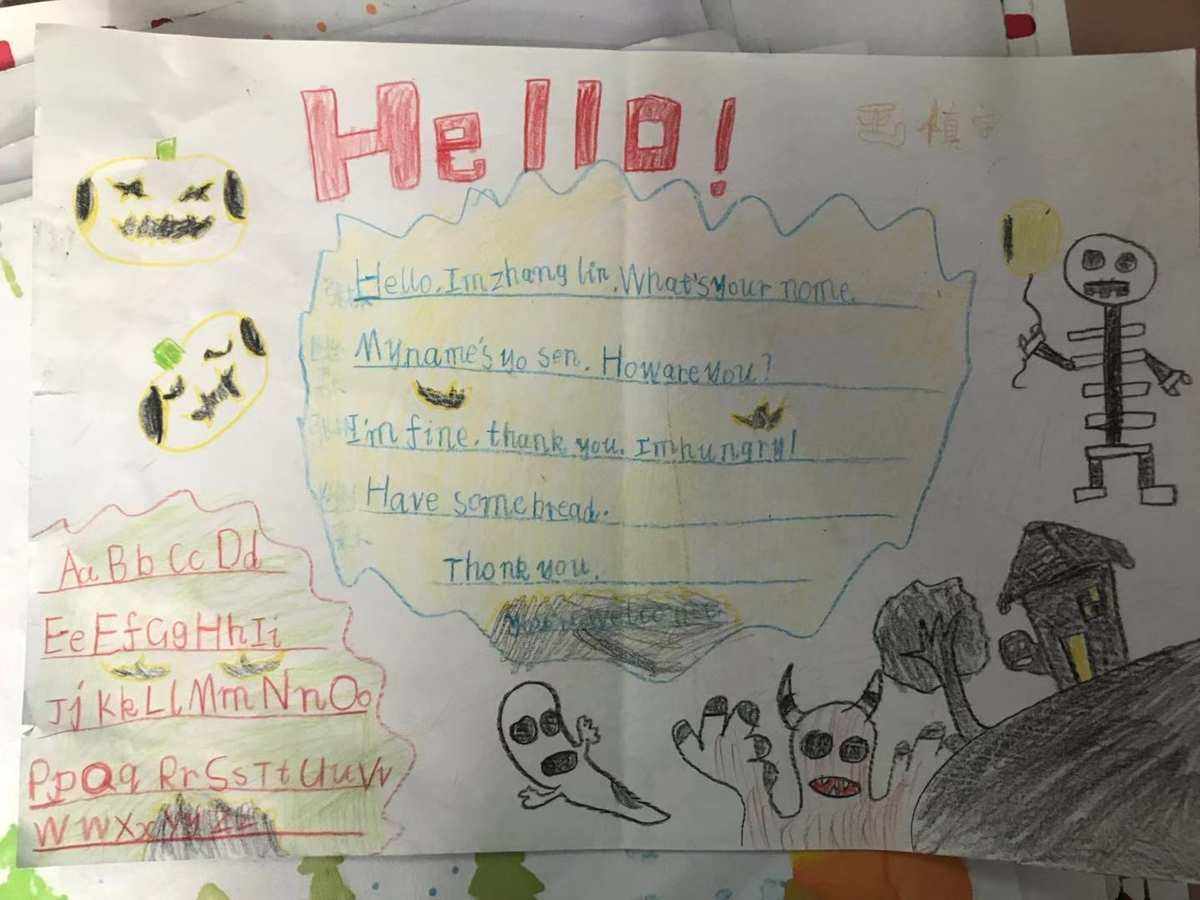 Hello!
Hello. I'm zhang lin. What's your nome.
My name's yo sen. How are you?
I'm fine. thank you. I'm hungry!
Have some bread.
Thonk you.
you're welcome
Aa Bb Cc Dd
Ee Ef Gg Hh Ii
Jj Kk Ll Mm Nn Oo
Pp Qq Rr Ss Tt Uu Vv
Ww Xx Yy Zz